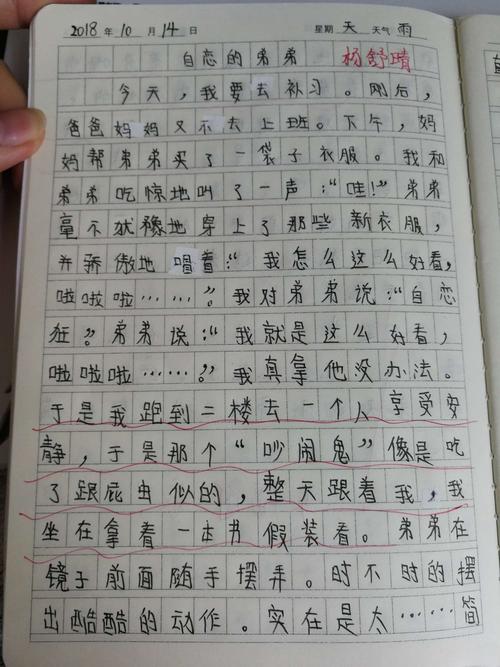 2018年10月14日 星期天 天气雨
自恋的弟弟 杨舒晴
今天，我要去补习。刚后，
爸爸妈妈又不去上班。下午，妈
妈帮弟弟买了一袋子衣服。我和
弟弟吃惊地叫了一声：“哇！”弟弟
毫不犹豫地穿上了那些新衣服，
并骄傲地唱着：“我怎么这么好看，
啦啦啦……”我对弟弟说：“自恋
狂”。弟弟说：“我就是这么好看，
啦啦啦……。”我真拿他没办法。
于是我跑到二楼去一个人享受安
静，于是那个“吵闹鬼”像是吃
了跟屁虫似的，整天跟着我，我
坐在拿着一本书假装看。弟弟在
镜子前面随手摆弄。时不时的摆
出酷酷的动作。实在是太……简